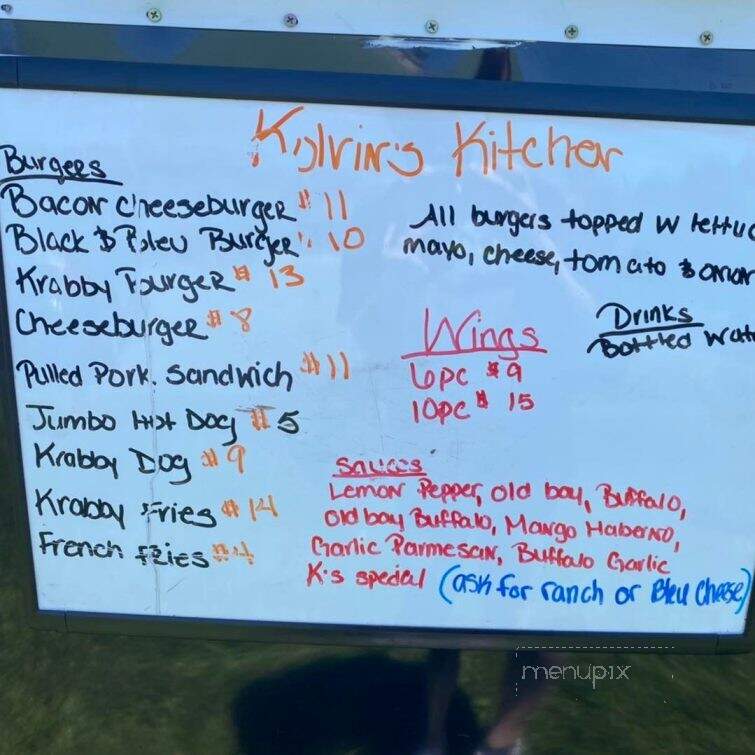 Kylvin's Kitchen
Burgers
Bacon Cheeseburger $11
Black $ Bleu Burger $10
Krabby Burger $13
Cheeseburger $8
Pulled Pork Sandwich $11
Jumbo Hot Dog $5
Krabby Dog $9
Krabby Fries $14
French Fries $4
All burgers topped w lettuc
mayo, cheese, tomato & onion
Wings
6pc $9
10pc $15
Drinks
Bottled Wat
Sauces
Lemon Pepper, Old bay, Buffalo,
Old bay Buffalo, Mango Haberno,
Garlic Parmesan, Buffalo Garlic
K's special (ask for ranch or Bleu Cheese)
menupix